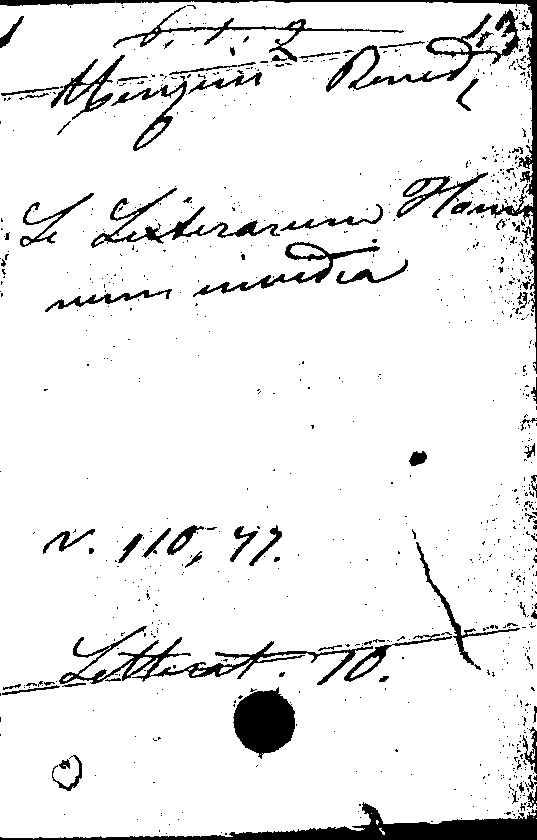 6. 1. 2
Menzini Bened.
De Litterarum Homi
num invidia
v. 110, 47.
Letterat. 10.